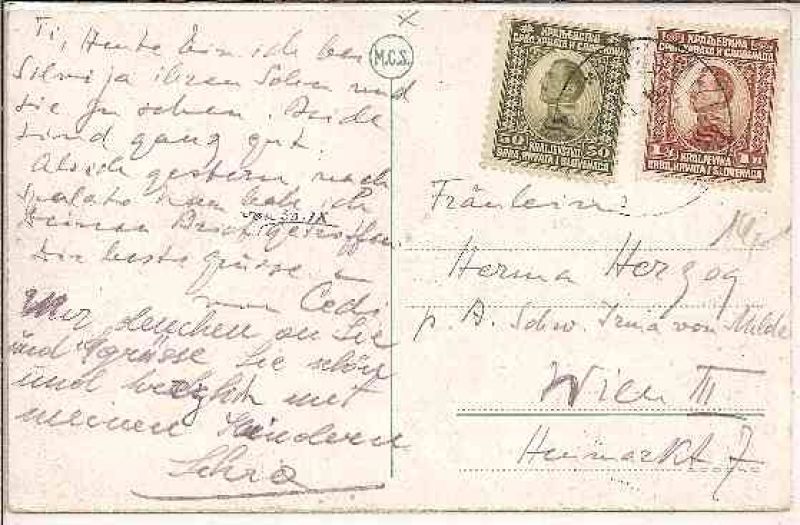 Ti, Heute bin ich bei
Silvija ihren Sohn und
sie zu sehen. Beide
sind ganz gut.
Als ich gestern nach
Spalato kam hab ich
Deinen Brief von 30. IX getroffen.
Die beste Grüsse
von Cedi
Wir denken an Sie
und grüsse Sie schön
und herzlich mit
meinen Kindern
M.G.S.
КРАЉЕВСТВО
СРБА, ХРВАТА И СЛОВЕНАЦА
50 50
KRALJEVSTVO
SRBA, HRVATA I SLOVENACA
КРАЉЕВИНА
СРБА, ХРВАТА И СЛОВЕНАЦА
1 1
KRALJEVINA
SRBA, HRVATA I SLOVENACA
Fräulein
Herma Herzog
p. A. Schw. Irma von Milde
Wien III
Heumarkt 7